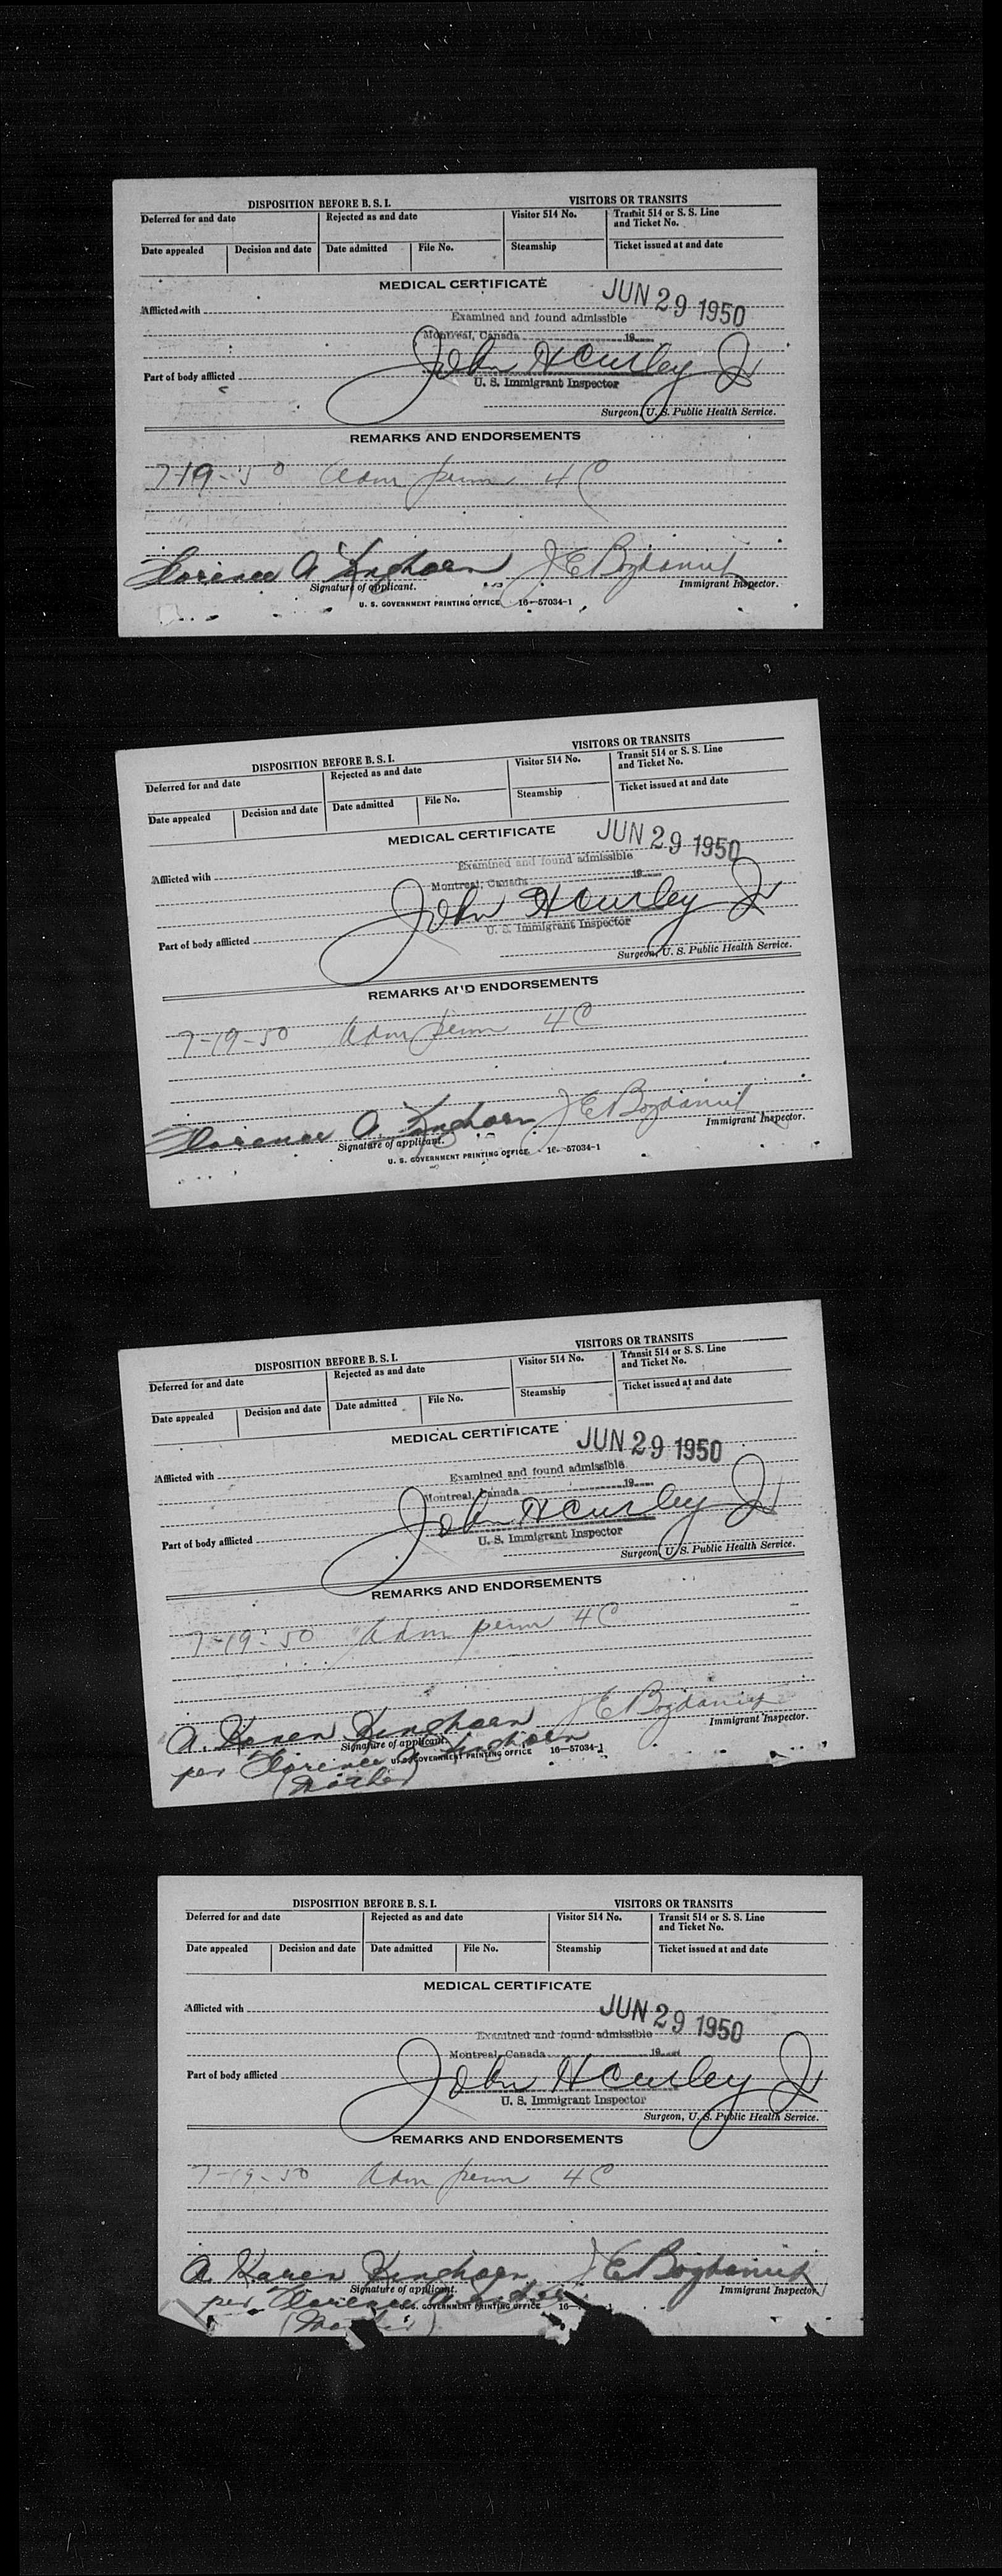 DISPOSITION BEFORE B. S. I. VISITORS OR TRANSITS
Deferred for and date Rejected as and date Visitor 514 No. Transit 514 or S. S. Line and Ticket No.
Date appealed Decision and date Date admitted File No. Steamship Ticket issued at and date
MEDICAL CERTIFICATE
JUN 29 1950
Afflicted with
Examined and found admissible
Montreal, Canada 19
John H Curley Jr
Part of body afflicted
U. S. Immigrant Inspector
Surgeon, U. S. Public Health Service.
REMARKS AND ENDORSEMENTS
7-19-50 adm perm 4C
Florence A Kinghorn J E Bogdaniut
Signature of applicant. Immigrant Inspector.
U. S. GOVERNMENT PRINTING OFFICE 16—57034-1
DISPOSITION BEFORE B. S. I. VISITORS OR TRANSITS
Deferred for and date Rejected as and date Visitor 514 No. Transit 514 or S. S. Line and Ticket No.
Date appealed Decision and date Date admitted File No. Steamship Ticket issued at and date
MEDICAL CERTIFICATE
JUN 29 1950
Afflicted with
Examined and found admissible
Montreal, Canada 19
John H Curley Jr
Part of body afflicted
U. S. Immigrant Inspector
Surgeon, U. S. Public Health Service.
REMARKS AND ENDORSEMENTS
7-19-50 adm perm 4C
Florence A. Kinghorn J E Bogdaniut
Signature of applicant. Immigrant Inspector.
U. S. GOVERNMENT PRINTING OFFICE 16—57034-1
DISPOSITION BEFORE B. S. I. VISITORS OR TRANSITS
Deferred for and date Rejected as and date Visitor 514 No. Transit 514 or S. S. Line and Ticket No.
Date appealed Decision and date Date admitted File No. Steamship Ticket issued at and date
MEDICAL CERTIFICATE
JUN 29 1950
Afflicted with
Examined and found admissible
Montreal, Canada 19
John H Curley Jr
Part of body afflicted
U. S. Immigrant Inspector
Surgeon, U. S. Public Health Service.
REMARKS AND ENDORSEMENTS
7-19-50 adm perm 4C
A. Karen Kinghorn J E Bogdaniut
Signature of applicant. Immigrant Inspector.
per Florence A Kinghorn
U. S. GOVERNMENT PRINTING OFFICE 16—57034-1
(Mother)
DISPOSITION BEFORE B. S. I. VISITORS OR TRANSITS
Deferred for and date Rejected as and date Visitor 514 No. Transit 514 or S. S. Line and Ticket No.
Date appealed Decision and date Date admitted File No. Steamship Ticket issued at and date
MEDICAL CERTIFICATE
JUN 29 1950
Afflicted with
Examined and found admissible
Montreal, Canada 19
John H Curley Jr
Part of body afflicted
U. S. Immigrant Inspector
Surgeon, U. S. Public Health Service.
REMARKS AND ENDORSEMENTS
7-19-50 adm perm 4C
A. Karen Kinghorn J E Bogdaniut
Signature of applicant. Immigrant Inspector.
per Florence
U. S. GOVERNMENT PRINTING OFFICE 16—